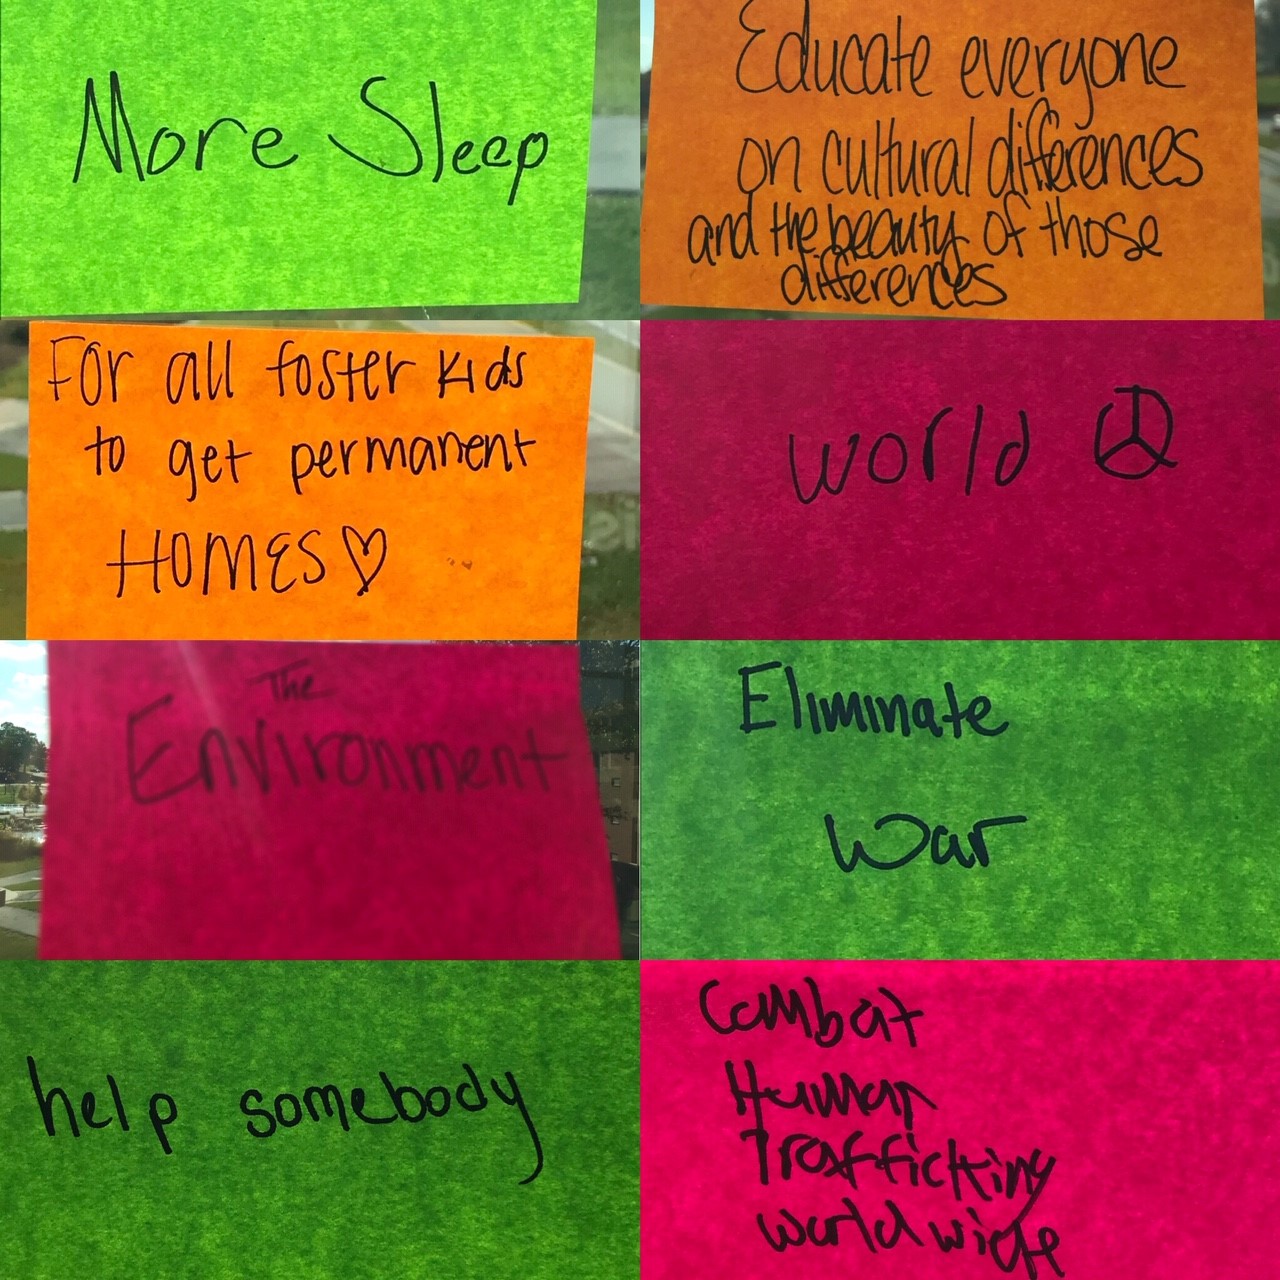 More Sleep
Educate everyone
on cultural differences
and the beauty of those
differences
For all foster kids
to get permanent
HOMES♡
world ☮
The
Environment
Eliminate
War
help somebody
Combat
Human
Trafficking
worldwide